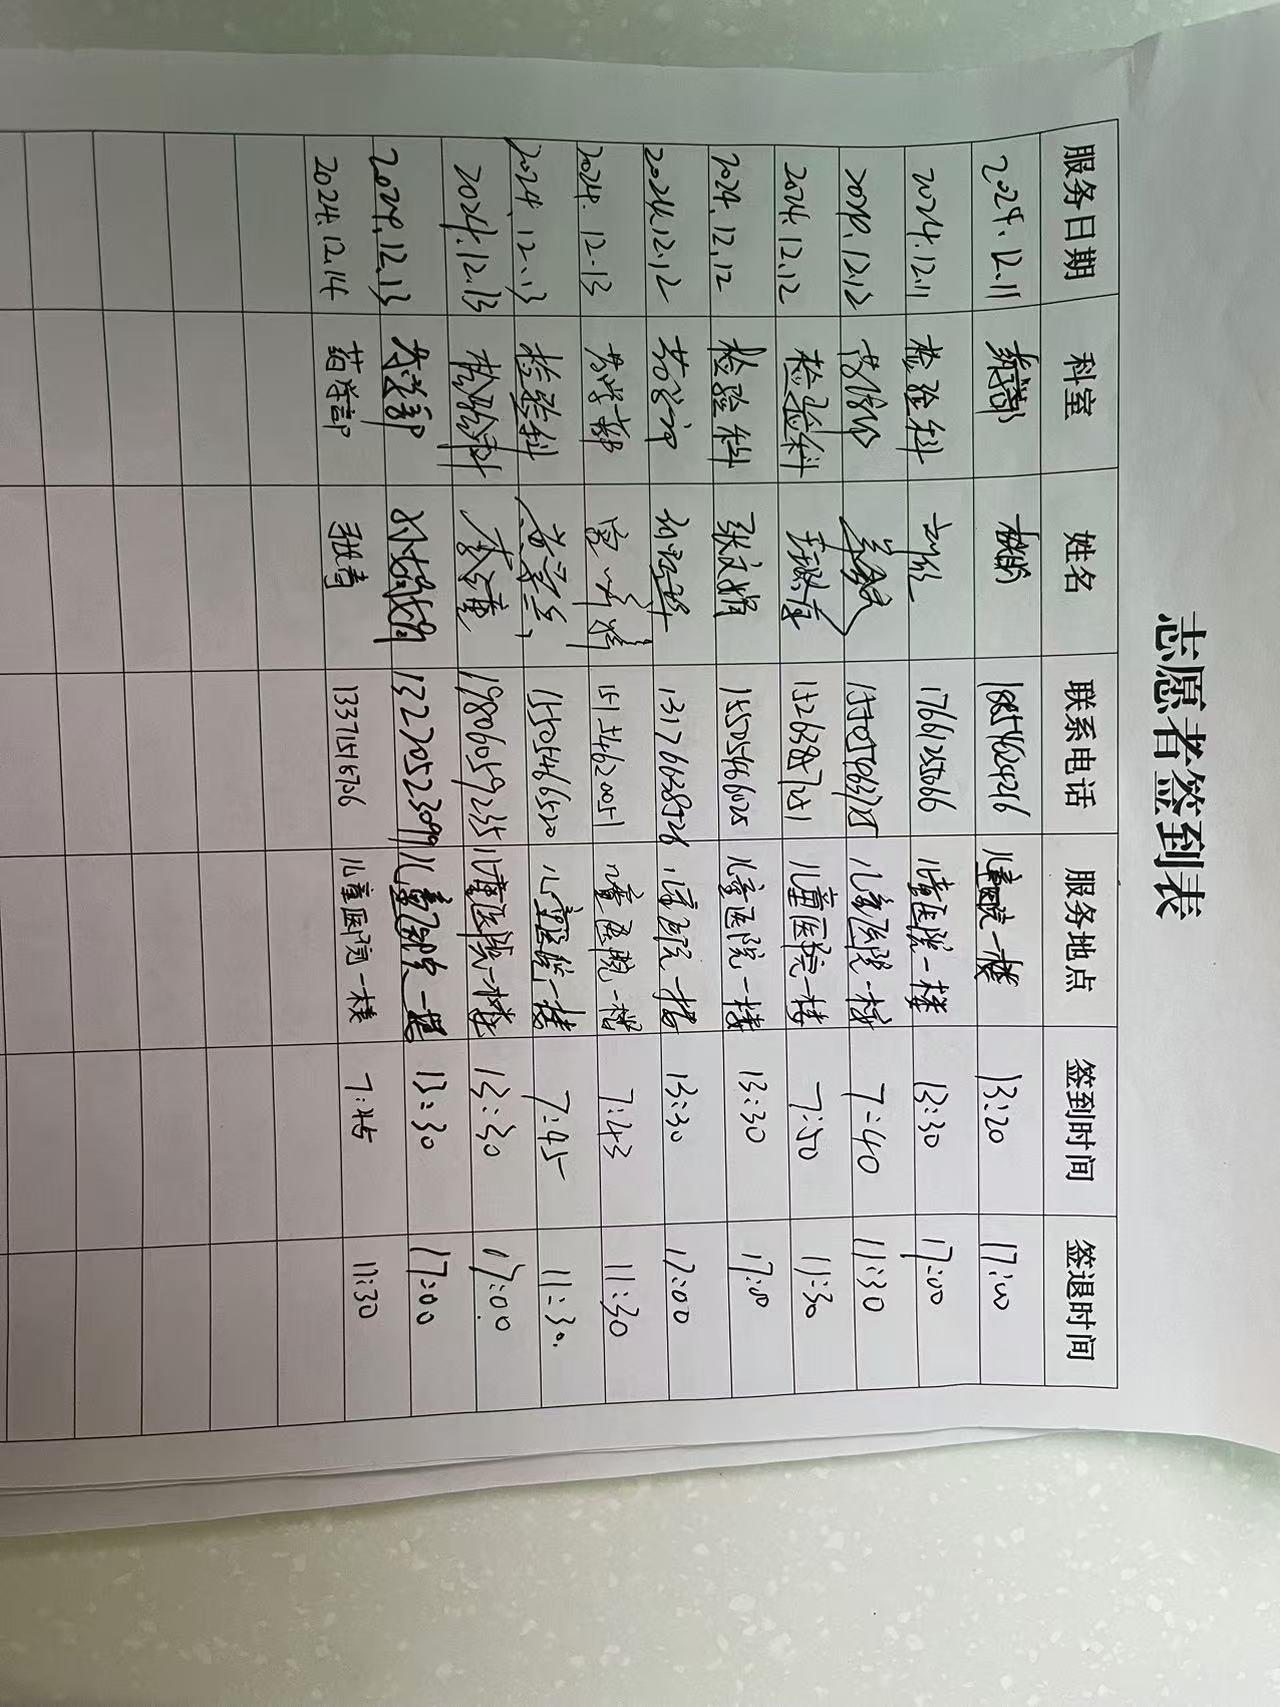 志愿者签到表
服务日期 科室 姓名 联系电话 服务地点 签到时间 签退时间
2024.12.11 药学部 18854624216 儿童医院一楼 13:20 17:00
2024.12.11 检验科 17661255066 儿童医院一楼 13:30 17:00
2024.12.12 药学部 15505463725 儿童医院一楼 7:40 11:30
2024.12.12 检验科 15263857251 儿童医院一楼 7:50 11:30
2024.12.12 检验科 张文娟 15505466025 儿童医院一楼 13:30 17:00
2024.12.12 13176638526 儿童医院一楼 13:30 17:00
2024.12.13 药学部 15154620051 儿童医院一楼 7:43 11:30
2024.12.13 检验科 15505466520 儿童医院一楼 7:45 11:30
2024.12.13 检验科 19806059235 儿童医院一楼 13:30 17:00
2024.12.13 药学部 13270523099 儿童医院一楼 13:30 17:00
2024.12.14 药学部 13371516706 儿童医院一楼 7:45 11:30